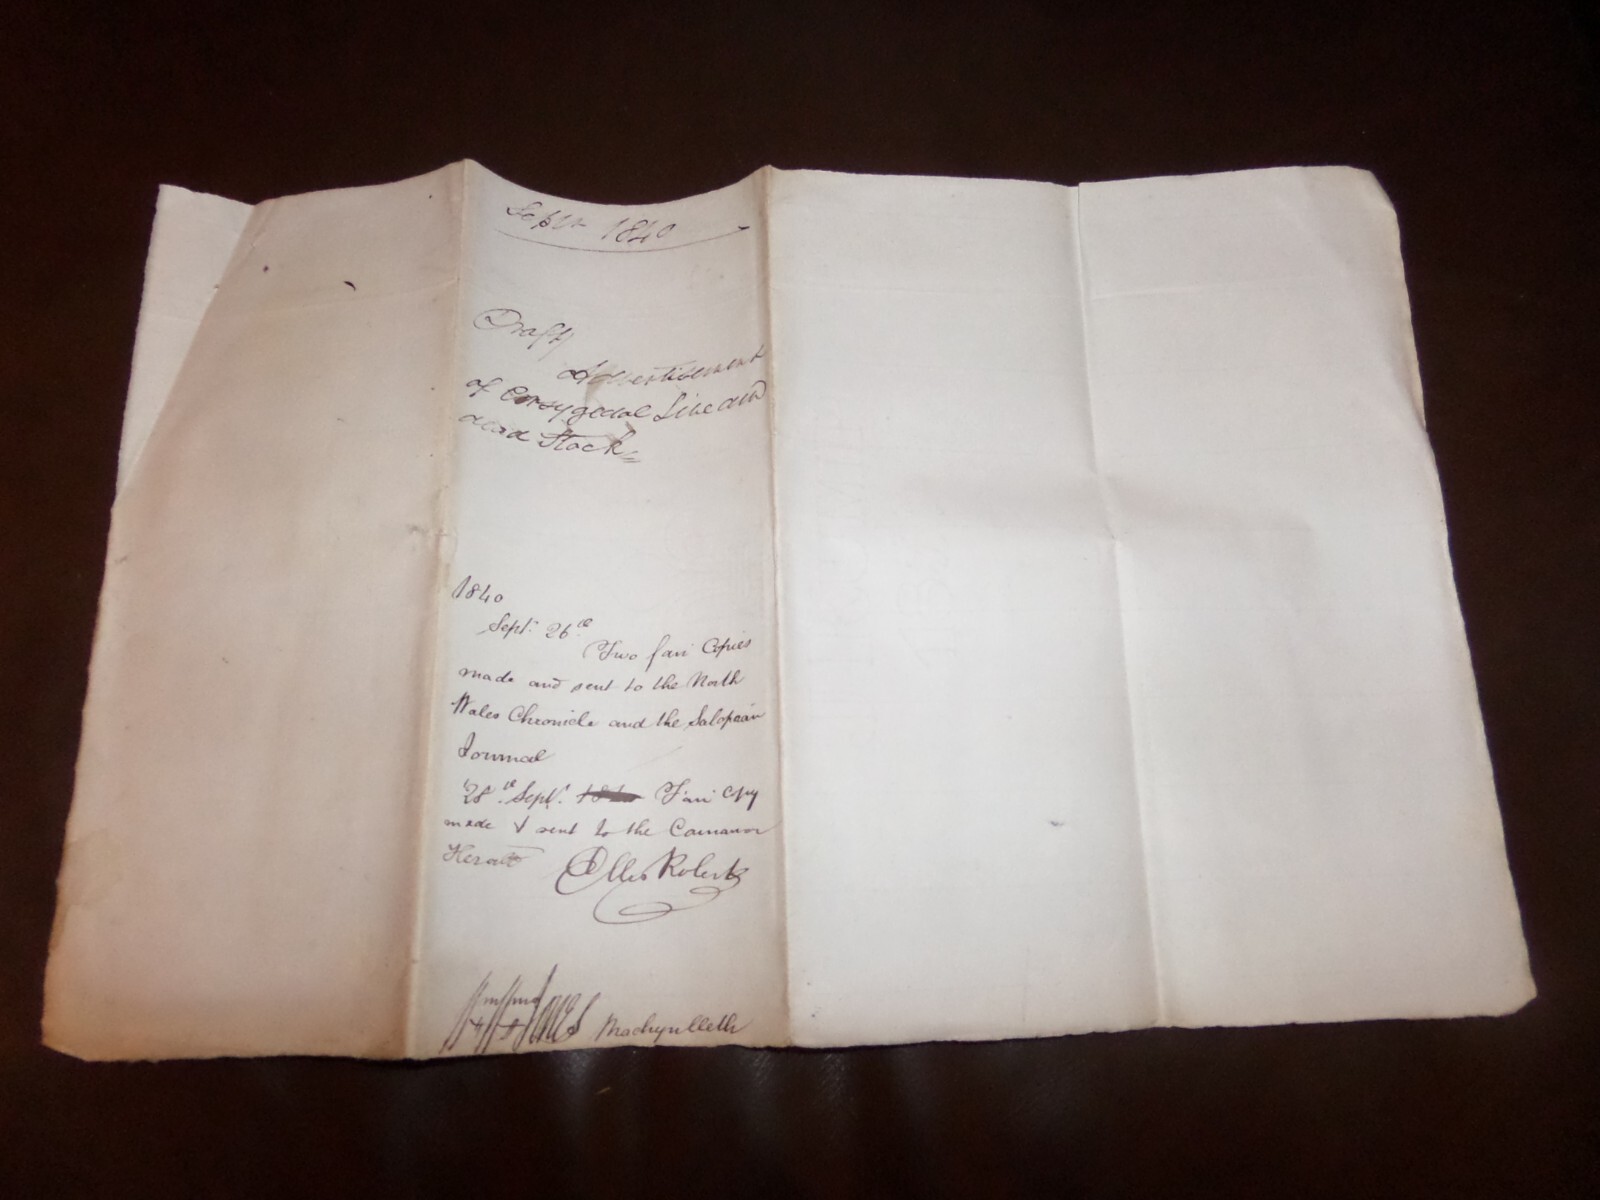 Septr 1840
Draft
Advertisement
of Corsygedol Live and
dead Stock
1840
Sept. 26th
Two fair Copies
made and sent to the North
Wales Chronicle and the Salopean
Journal
28th Sept. Fair Copy
made & sent to the Carnarvon
Herald
Ellis Roberts
Machynlleth